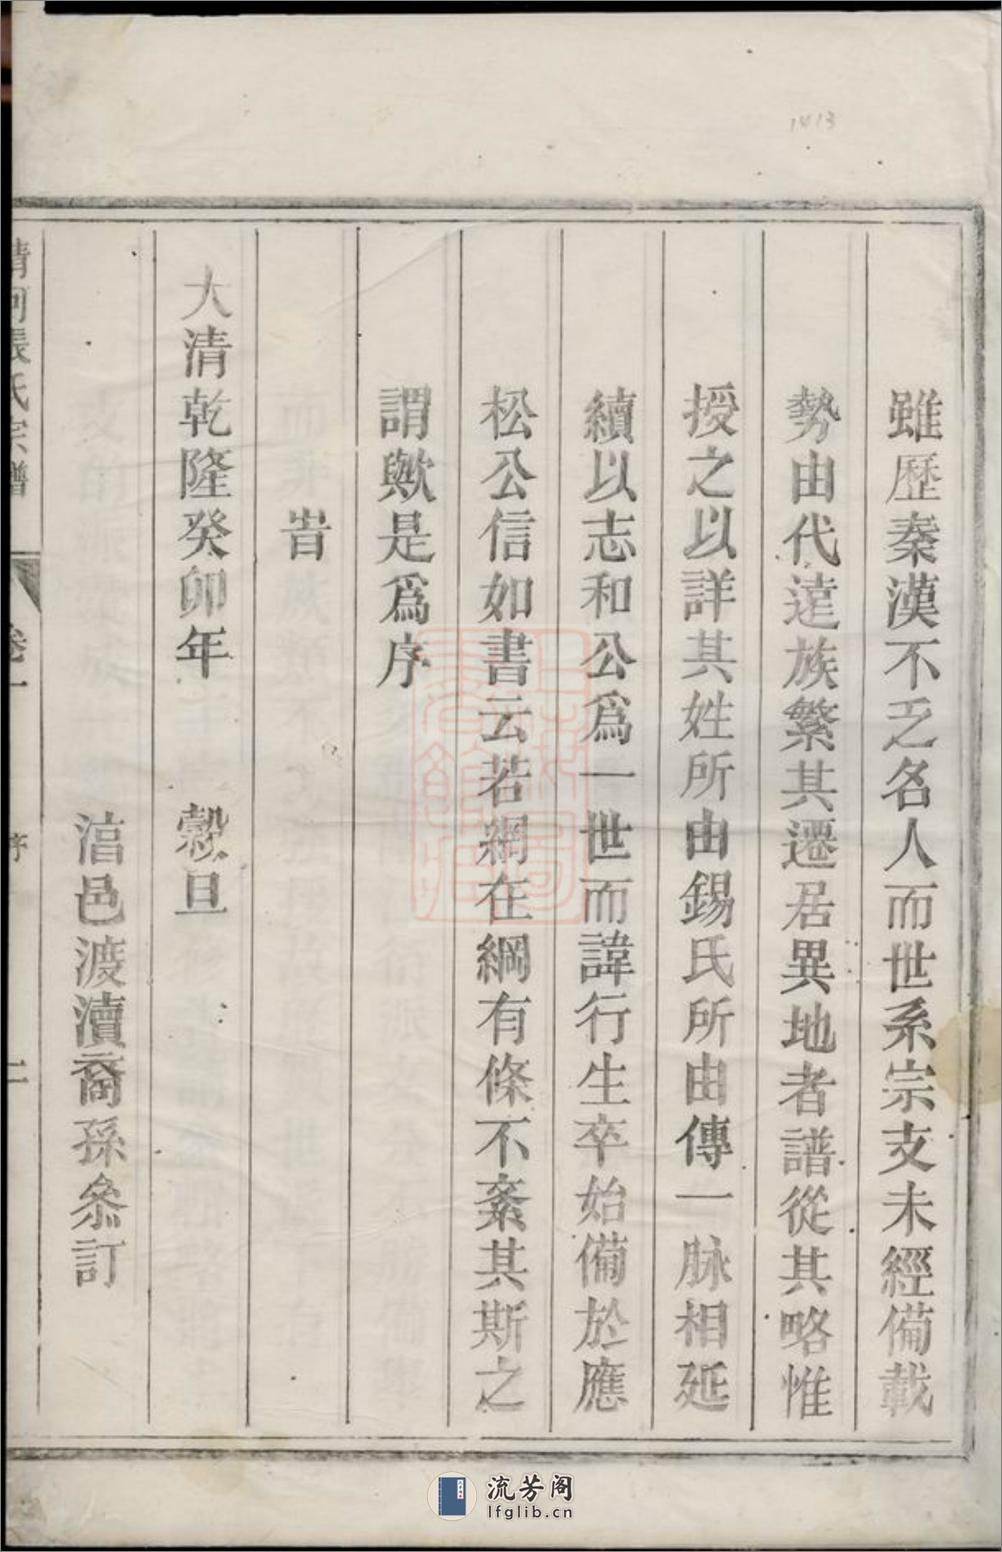 1413
雖歷秦漢不乏名人而世系宗支未經備載
勢由代逺族繁其遷居異地者譜從其略惟
授之以詳其姓所由錫氏所由傳一脉相延
續以志和公爲一世而諱行生卒始備於應
松公信如書云若網在綱有條不紊其斯之
謂歟是爲序
旹
大清乾隆癸卯年 穀旦
湻邑渡瀆裔孫叅訂
清河張氏宗譜 卷一 序 二
流芳阁
lfglib.cn